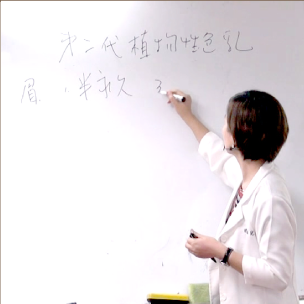 第二代植物性色乳
眉、半永久 3